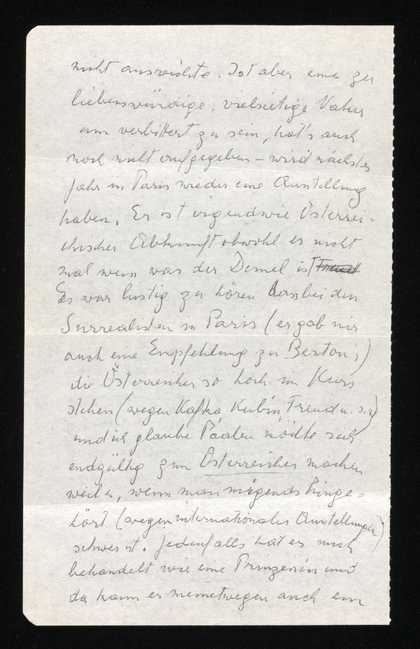 nicht ausreichte. Ist aber eine zu
liebenswürdige, vielseitige Natur
um verbittert zu sein, hat's auch
noch nicht aufgegeben – wird nächstes
Jahr in Paris wieder eine Austellung
haben. Er ist irgendwie Österrei-
chischer Abkunft obwohl er nicht
mal weiss was der Demel ist
Es war lustig zu hören dass bei den
Surrealisten in Paris (er gab mir
auch eine Empfehlung zu Breton!)
die Österreicher so hoch im Kurs
stehen (wegen Kafka Kubin, Freud u.s.w)
und ich glaube Paalen möchte sich
endgültig zum Österreicher machen
weil er, wenn man nirgends hinge-
hört (wegen internationaler Austellungen)
schwer ist. Jedenfalls hat er mich
behandelt wie eine Prinzessin und
da kann er meinetwegen auch ein